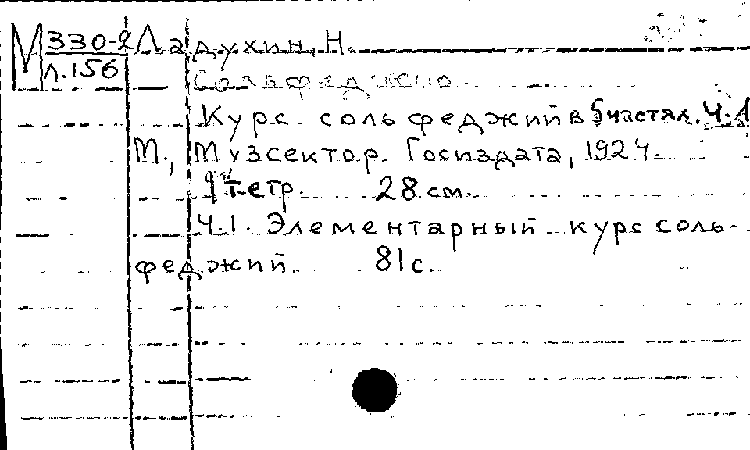 М 330-2 Ладухин, Н.
Л.156 Сольфеджио
Курс сольфеджий в 5 частях. Ч.1
М., Музсектор Госиздата, 1924
тетр. 28 см.
Ч.1. Элементарный курс соль-
феджий. 81 с.